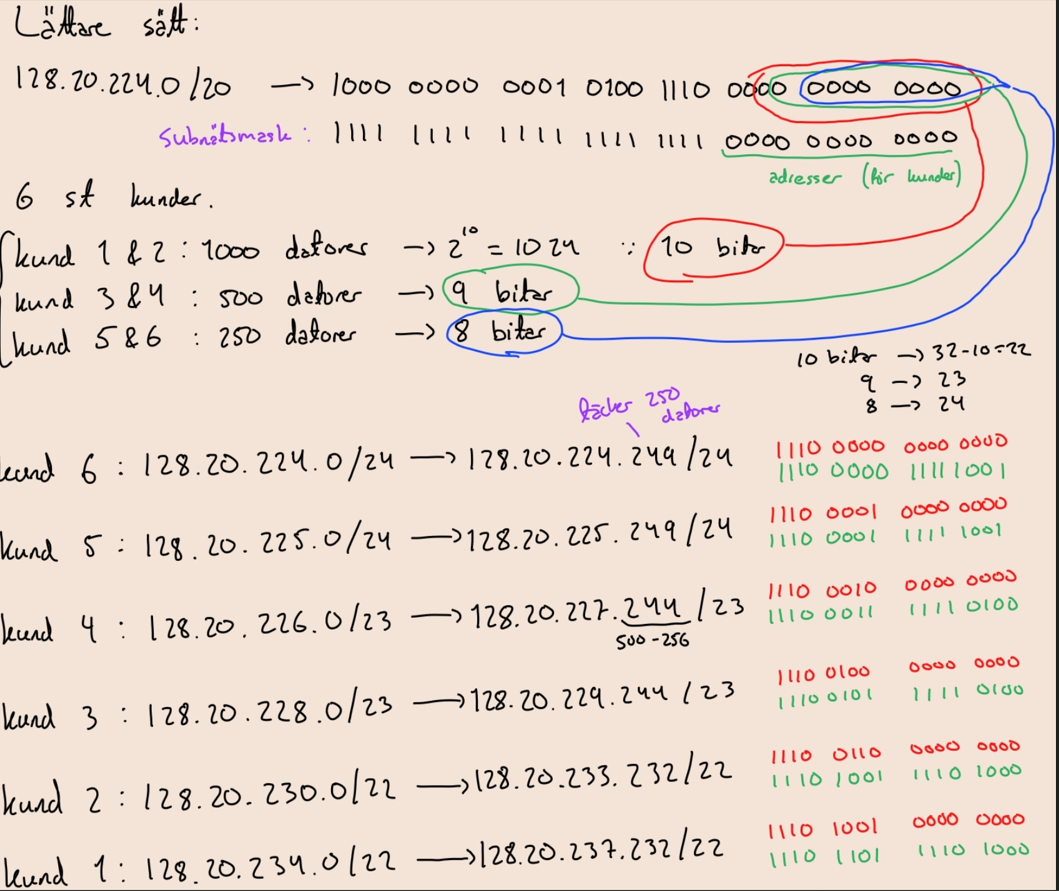 Lättare sätt:
128.20.224.0/20 → 1000 0000 0001 0100 1110 0000 0000 0000
Subnätsmask: 1111 1111 1111 1111 1111 0000 0000 0000
adresser (för kunder)
6 st kunder.
kund 1 & 2 : 1000 datorer → 2^10 = 1024 ∵ 10 bitar
kund 3 & 4 : 500 datorer → 9 bitar
kund 5 & 6 : 250 datorer → 8 bitar
10 bitar → 32-10=22
9 → 23
8 → 24
täcker 250 datorer
kund 6 : 128.20.224.0/24 → 128.20.224.249/24
1110 0000 0000 0000
1110 0000 1111 1001
kund 5 : 128.20.225.0/24 → 128.20.225.249/24
1110 0001 0000 0000
1110 0001 1111 1001
kund 4 : 128.20.226.0/23 → 128.20.227.244/23
500-256
1110 0010 0000 0000
1110 0011 1111 0100
kund 3 : 128.20.228.0/23 → 128.20.229.244/23
1110 0100 0000 0000
1110 0101 1111 0100
kund 2 : 128.20.230.0/22 → 128.20.233.232/22
1110 0110 0000 0000
1110 1001 1110 1000
kund 1: 128.20.234.0/22 → 128.20.237.232/22
1110 1001 0000 0000
1110 1101 1110 1000